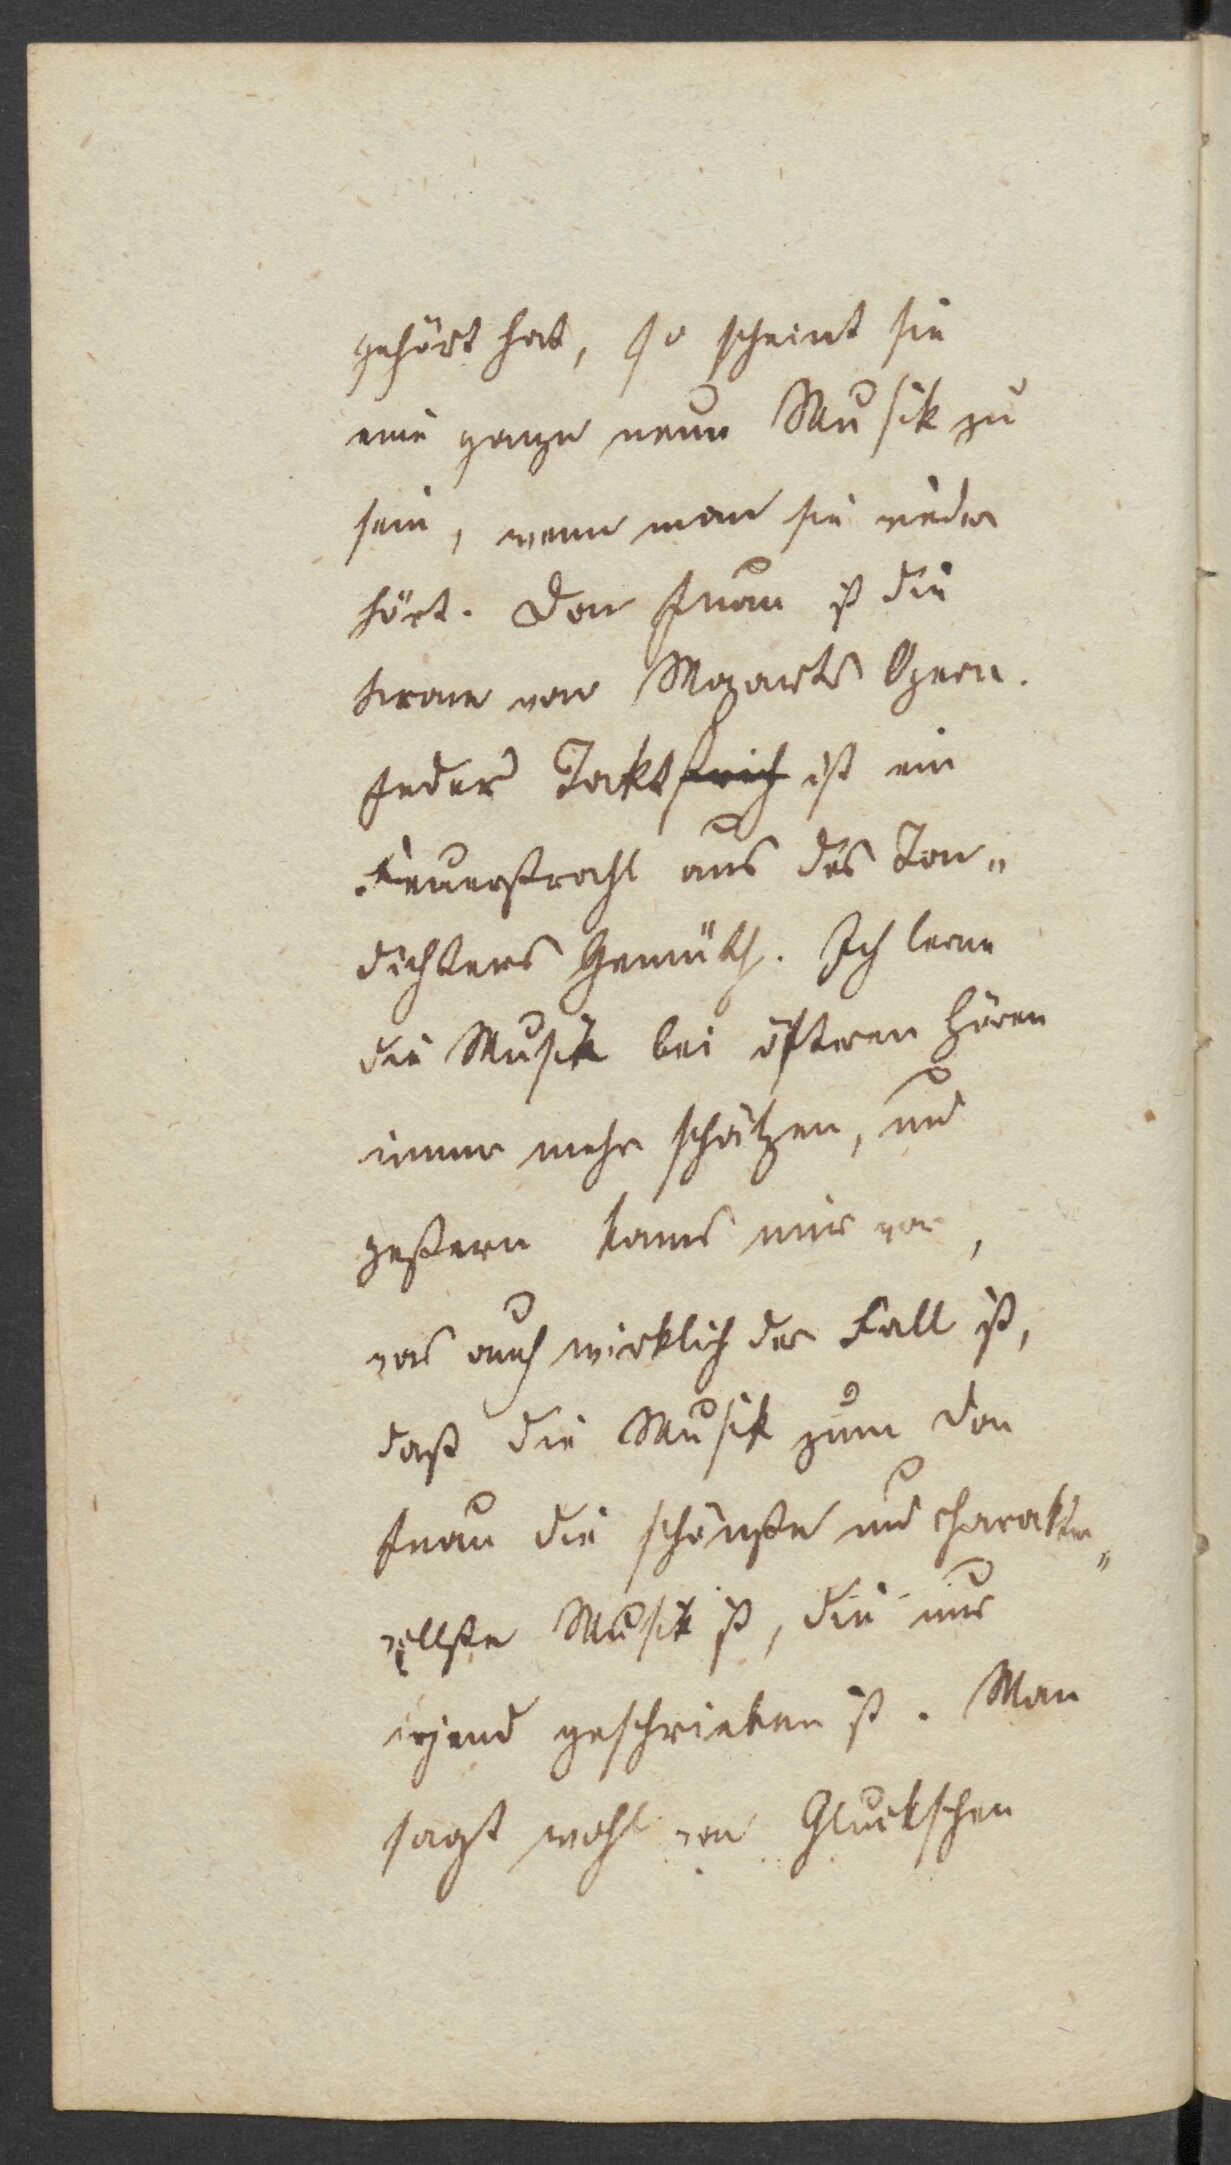 gehört hat, so scheint sie
eine ganze neue Musik zu
sein, wenn man sie wieder
hört. Don Juan ist die
Krone von Mozarts Opern.
Jeder Taktstrich ist ein
Feuerstrahl aus des Ton„
dichters Gemüth. Ich lerne
die Musik bei öfteren Hören
immer mehr schätzen, und
gestern kams mir vor,
was auch wirklich der Fall ist,
daß die Musik zum Don
Juan die schönste und charakter„
vollste Musik ist, die nur
irgend geschrieben ist. Man
sagt wohl von Gluckschen